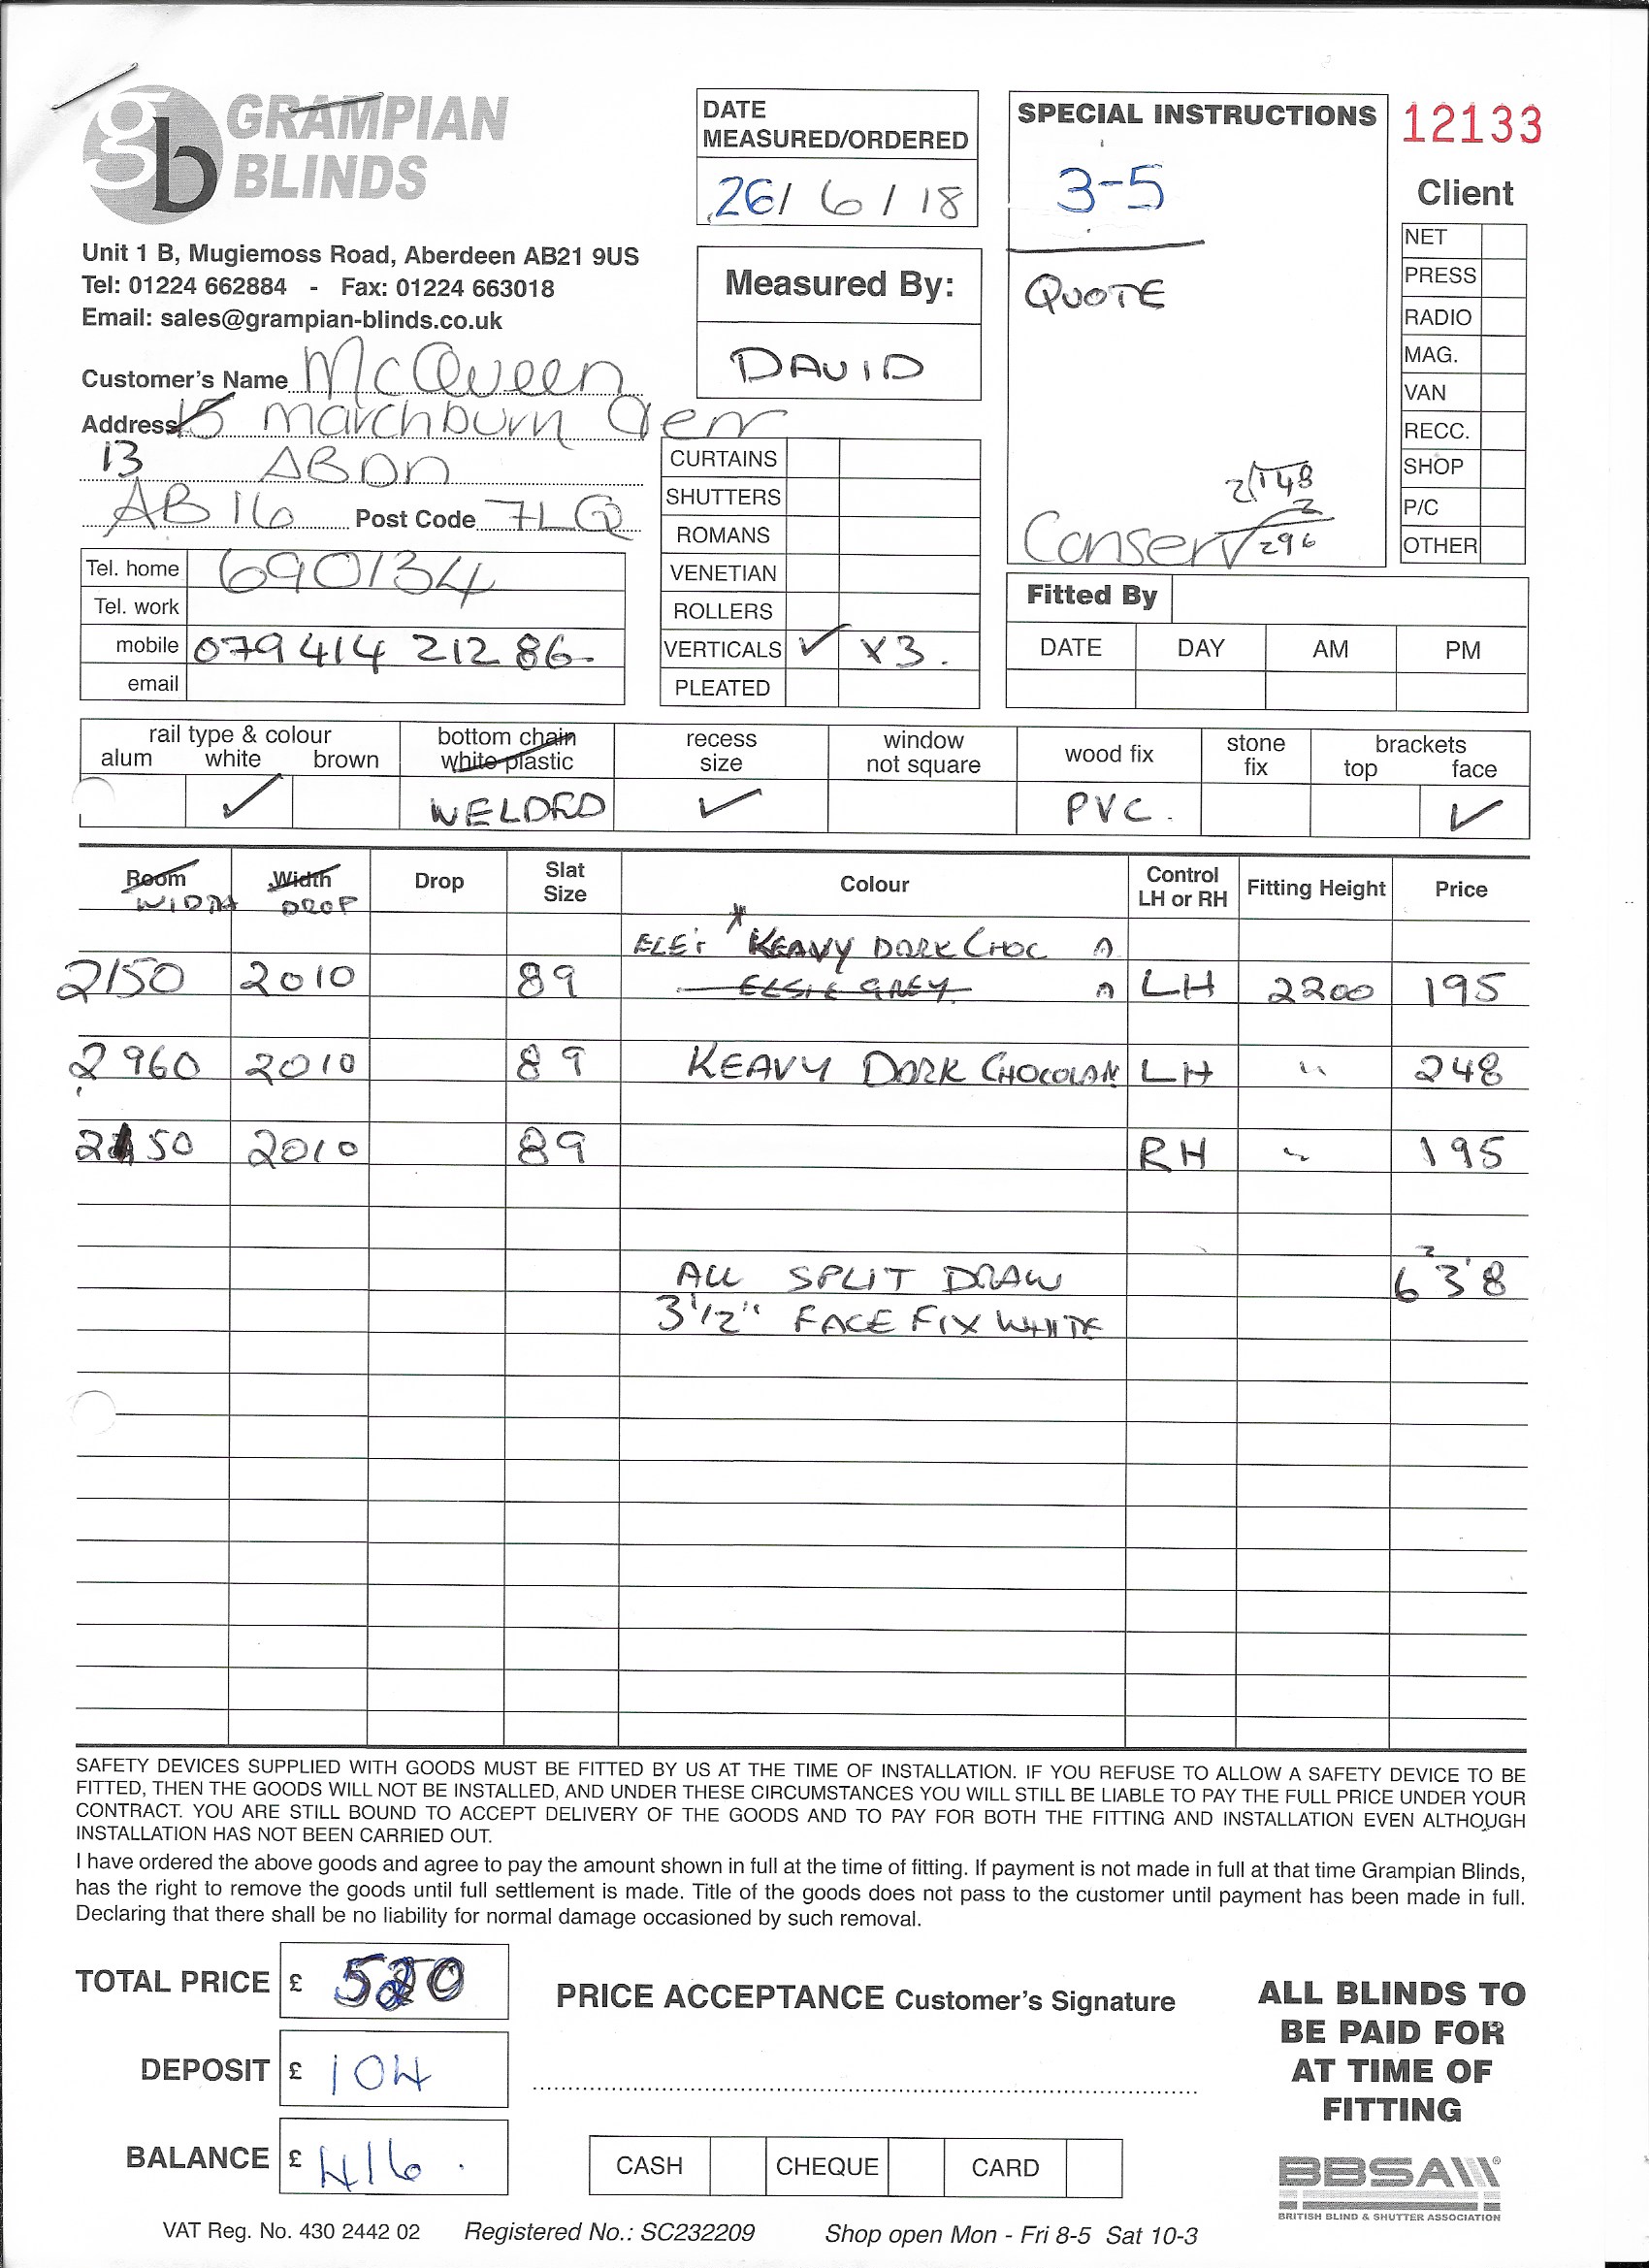 gb GRAMPIAN
BLINDS
Unit 1 B, Mugiemoss Road, Aberdeen AB21 9US
Tel: 01224 662884 - Fax: 01224 663018
Email: sales@grampian-blinds.co.uk
Customer's Name McQueen
Address 15 Marchburn Terr
13 ABDN
AB16 Post Code 7LQ
Tel. home 690134
Tel. work
mobile 079 414 212 86.
email
DATE
MEASURED/ORDERED
26/ 6 / 18
Measured By:
DAVID
CURTAINS
SHUTTERS
ROMANS
VENETIAN
ROLLERS
VERTICALS ✓ X3.
PLEATED
SPECIAL INSTRUCTIONS
3-5
QUOTE
2/148
2
296
Conserv
12133
Client
NET
PRESS
RADIO
MAG.
VAN
RECC.
SHOP
P/C
OTHER
Fitted By
DATE DAY AM PM
rail type & colour
alum white brown
✓
bottom chain
white plastic
WELDED
recess
size
✓
window
not square
wood fix
PVC.
stone
fix
brackets
top face
✓
Room Width Drop Slat Size Colour Control LH or RH Fitting Height Price
WIDTH DROP
KEAVY DARK CHOC
2150 2010 89 ELSIE GREY LH 2200 195
2960 2010 89 KEAVY DARK CHOCOLATE LH " 248
2150 2010 89 RH " 195
ALL SPLIT DRAW 638
3 1/2" FACE FIX WHITE
SAFETY DEVICES SUPPLIED WITH GOODS MUST BE FITTED BY US AT THE TIME OF INSTALLATION. IF YOU REFUSE TO ALLOW A SAFETY DEVICE TO BE
FITTED, THEN THE GOODS WILL NOT BE INSTALLED, AND UNDER THESE CIRCUMSTANCES YOU WILL STILL BE LIABLE TO PAY THE FULL PRICE UNDER YOUR
CONTRACT. YOU ARE STILL BOUND TO ACCEPT DELIVERY OF THE GOODS AND TO PAY FOR BOTH THE FITTING AND INSTALLATION EVEN ALTHOUGH
INSTALLATION HAS NOT BEEN CARRIED OUT.
I have ordered the above goods and agree to pay the amount shown in full at the time of fitting. If payment is not made in full at that time Grampian Blinds,
has the right to remove the goods until full settlement is made. Title of the goods does not pass to the customer until payment has been made in full.
Declaring that there shall be no liability for normal damage occasioned by such removal.
TOTAL PRICE £ 520
DEPOSIT £ 104
BALANCE £ 416.
PRICE ACCEPTANCE Customer's Signature
CASH CHEQUE CARD
ALL BLINDS TO
BE PAID FOR
AT TIME OF
FITTING
BBSA
BRITISH BLIND & SHUTTER ASSOCIATION
VAT Reg. No. 430 2442 02 Registered No.: SC232209 Shop open Mon - Fri 8-5 Sat 10-3